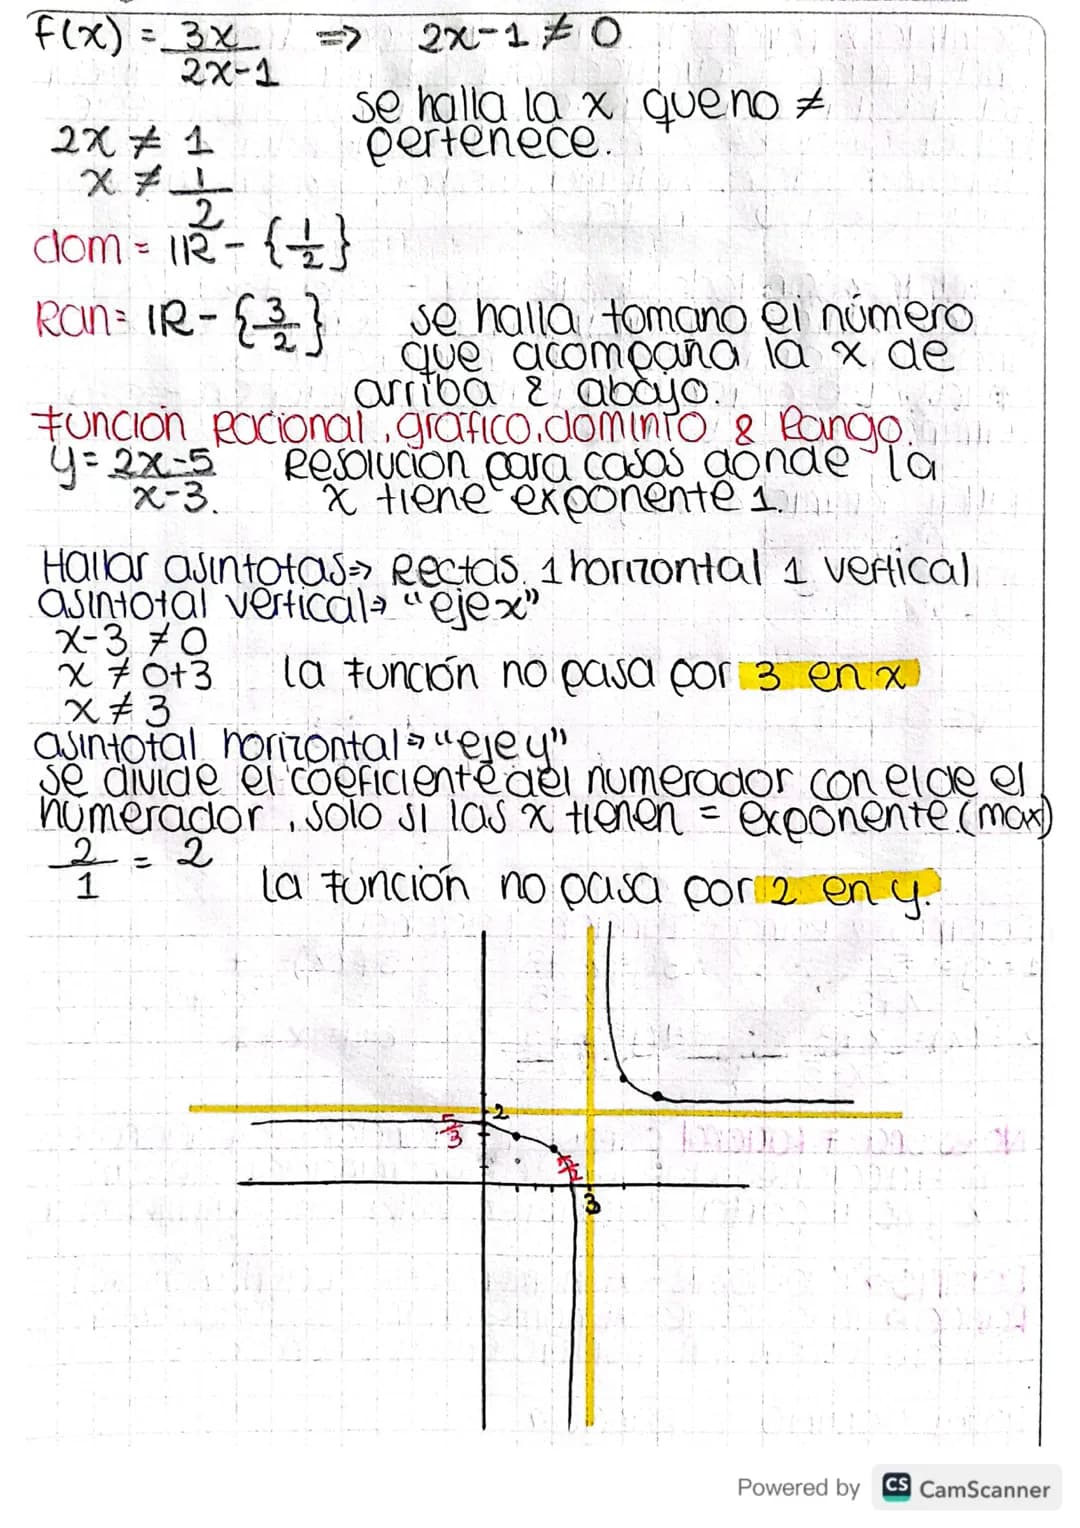 f(x) = 3x/2x-1 => 2x-1 ≠ 0
se halla la x que no ≠
pertenece.
2x ≠ 1
x ≠ 1/2
dom = IR - {1/2}
Ran = IR - {3/2} se halla tomano el número
que acompaña la x de
arriba & abajo.
función racional, grafico, dominio & Rango.
y = 2x-5/x-3. Resolución para casos donde la
x tiene exponente 1.
Hallar asintotas => Rectas. 1 horizontal 1 vertical
asintotal vertical → "eje x"
x-3 ≠ 0
x ≠ 0+3 la función no pasa por 3 en x
x ≠ 3
asintotal horizontal → "eje y"
se divide el coeficiente del numerador con el de el
numerador, solo si las x tienen = exponente (max)
2/1 = 2
la función no pasa por 2 en y.
2
5/3
5/2
3
Powered by CS CamScanner